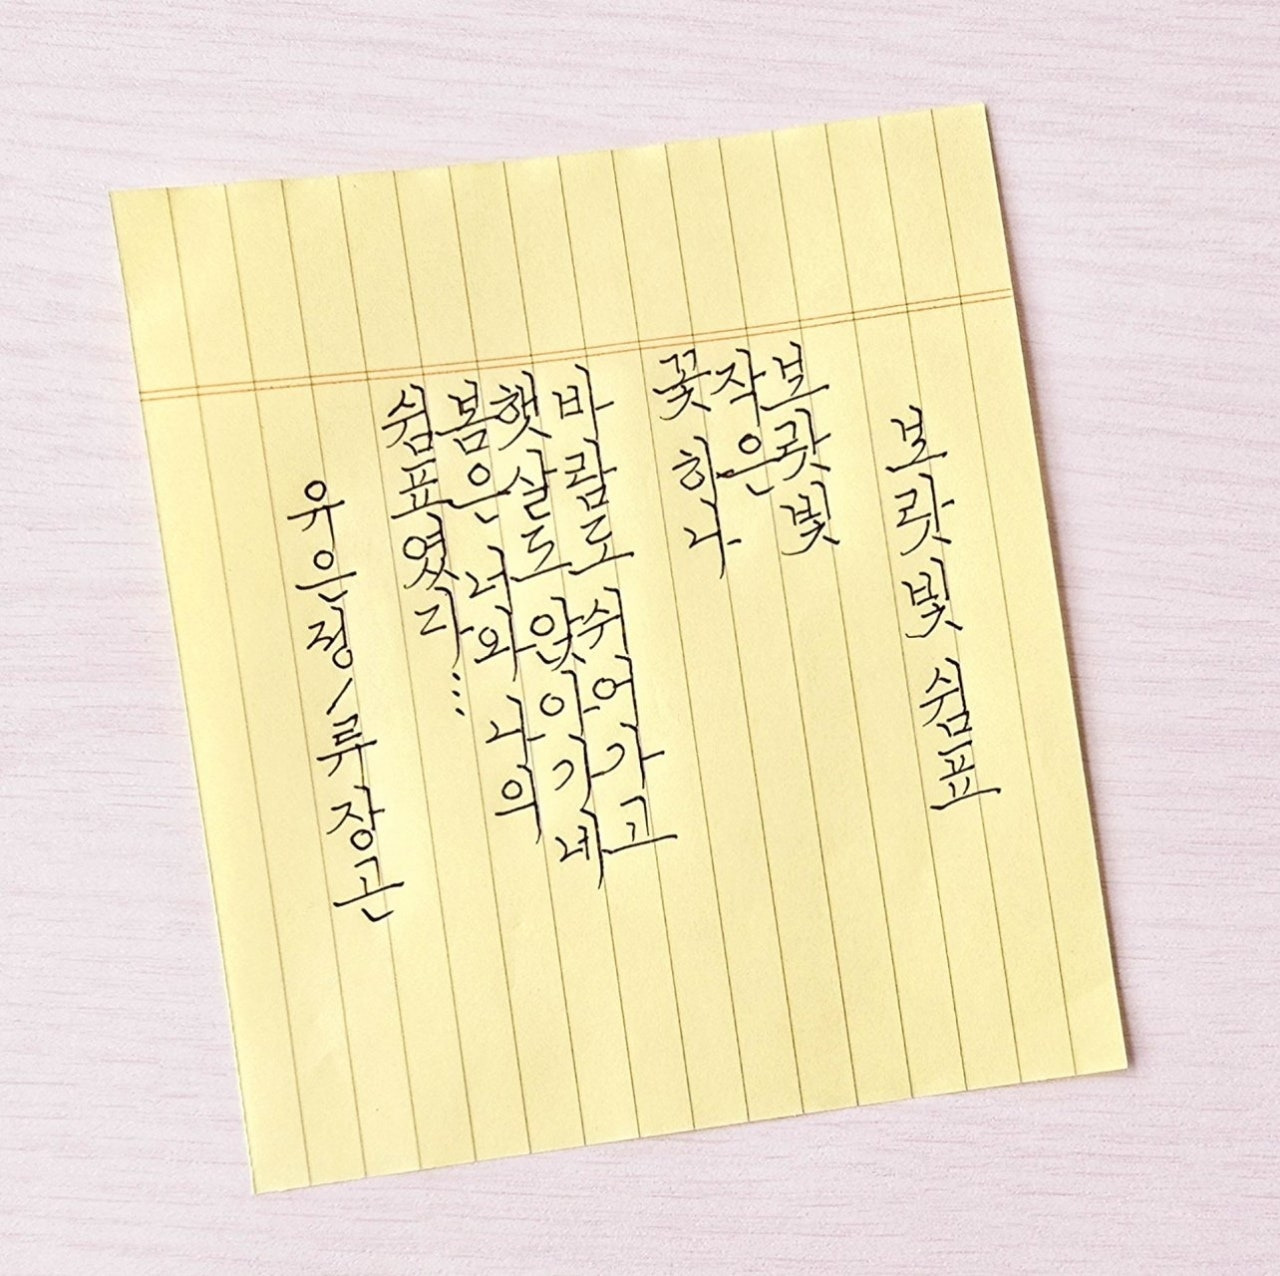 보랏빛 쉼표
보랏빛
작은
꽃 하나
바람도 쉬어가고
햇살도 앉아가네
봄은 너와 나의
쉼표였다...
유은정/류장곤